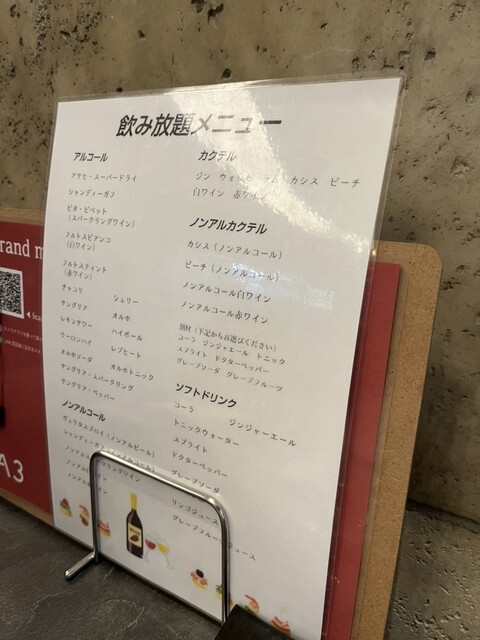 飲み放題メニュー
アルコール
アサヒ・スーパードライ
シャンディーガフ
ピタ・ピペット
(スパークリングワイン)
フルトスビアンコ
(白ワイン)
フルトスティント
(赤ワイン)
チャコリ
シェリー
サングリア
オルホ
レモンサワー
ハイボール
ウーロンハイ
レブヒート
オルホソーダ
オルホトニック
サングリア・スパークリング
サングリア・ペッパー
ノンアルコール
ヴェリタスブロイ(ノンアルビール)
シャンディーガフ(ノンアルコール)
カクテル
ジン ウォッカ ラム カシス ピーチ
白ワイン 赤ワイン
ノンアルカクテル
カシス(ノンアルコール)
ピーチ(ノンアルコール)
ノンアルコール白ワイン
ノンアルコール赤ワイン
割材(下記からお選びください)
コーラ ジンジャエール トニック
スプライト ドクターペッパー
グレープソーダ グレープフルーツ
ソフトドリンク
コーラ
ジンジャーエール
トニックウォーター
スプライト
ドクターペッパー
グレープソーダ
リンゴジュース
グレープフルーツジュース
rand m
A3